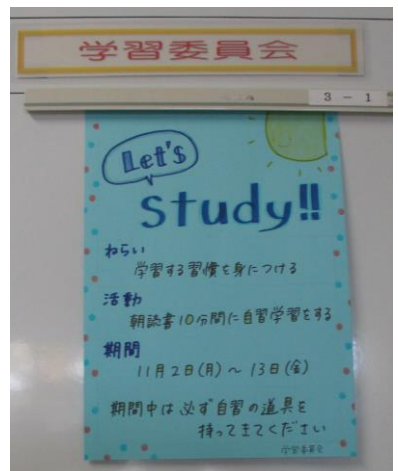 学習委員会
3-1
Let's
study!!
ねらい
学習する習慣を身につける
活動
朝読書10分間に自習学習をする
期間
11月2日(月)〜13日(金)
期間中は必ず自習の道具を
持ってきてください
学習委員会